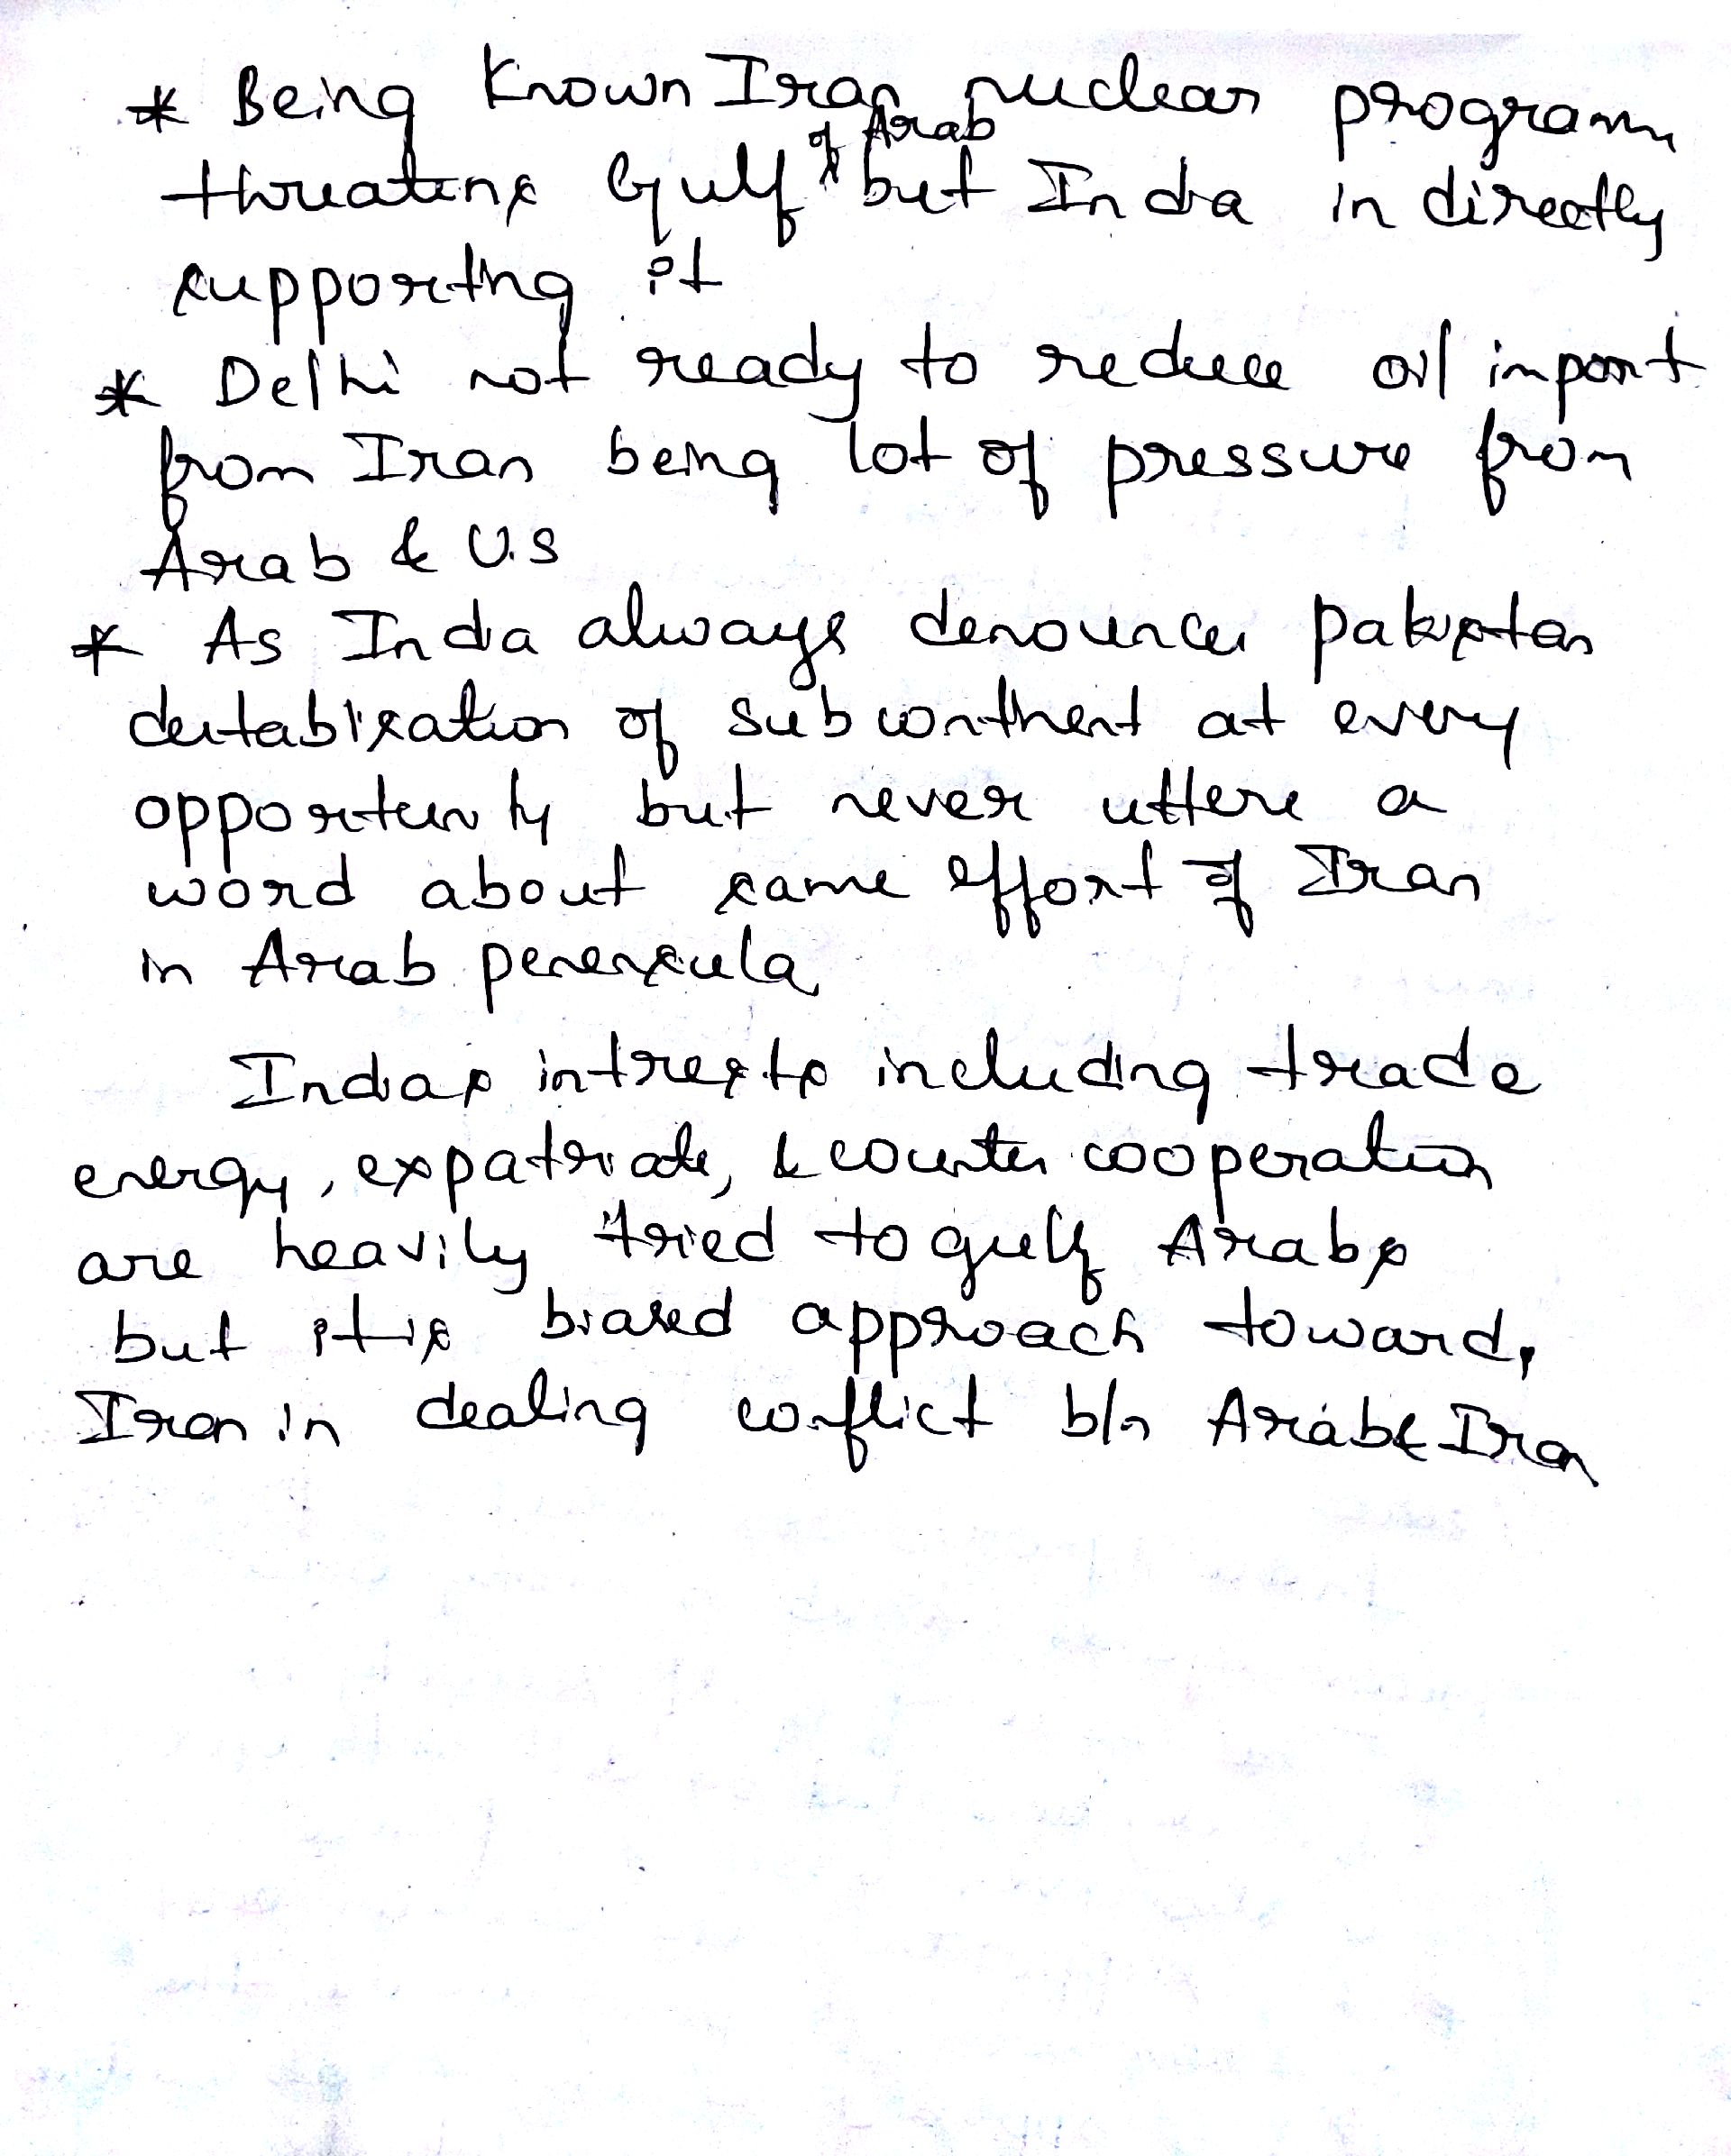 * Being known Iran nuclear program
of Arab
threatens Gulf but India in directly
supporting it
* Delhi not ready to reduce oil import
from Iran being lot of pressure from
Arab & U.S
* As India always denounces pakistan
destablisation of subcontinent at every
opportunity but never uttere a
word about same effort of Iran
in Arab penensula
Indias intrests including trade
energy, expatriate, & counter cooperation
are heavily tried to gulf Arabs
but it is biased approach toward,
Iran in dealing conflict b/n Arab & Iran